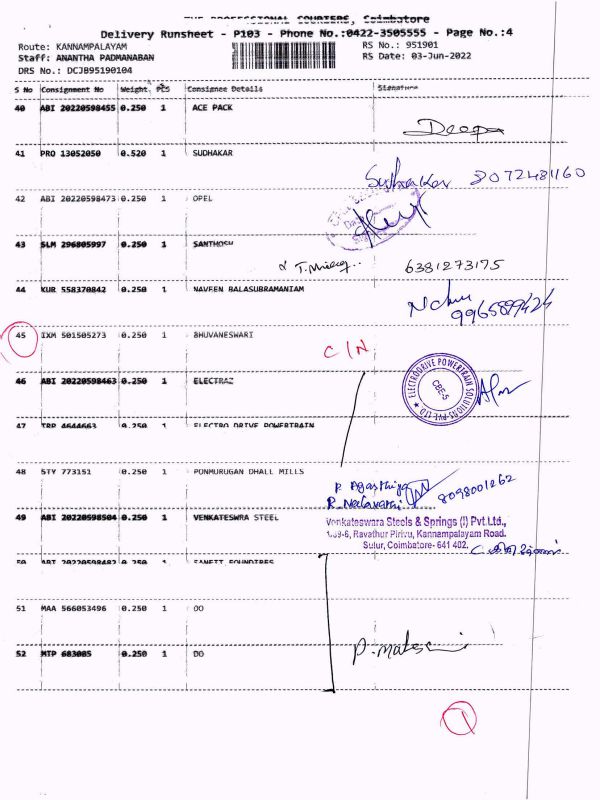 THE PROFESSIONAL COURIERS, Coimbatore
Delivery Runsheet - P103 - Phone No.:0422-3505555 - Page No.:4
Route: KANNAMPALAYAM RS No.: 951901
Staff: ANANTHA PADMANABAN RS Date: 03-Jun-2022
DRS No.: DCJB95190104
S No Consignment No Weight. PCS Consignee Details Signature
40 ABI 20220598455 0.250 1 ACE PACK
Deepa
41 PRO 13052050 0.520 1 SUDHAKAR
Sudhakar 8072481160
42 ABI 20220598473 0.250 1 OPEL
43 SLM 296805997 0.250 1 SANTHOSH
6381273175
44 KUR 558370842 0.250 1 NAVEEN BALASUBRAMANIAM
9965899424
45 IXM 501505273 0.250 1 BHUVANESWARI
C/N
46 ABI 20220598463 0.250 1 ELECTRAZ
ELECTRODRIVE POWERTRAIN SOLUTIONS PVT. LTD
CBE-5
47 TRP 4644663 0.250 1 ELECTRO DRIVE POWERTRAIN
48 STY 773151 0.250 1 PONMURUGAN DHALL MILLS
P. Agasthiya
R. Neelavathi 8098001262
49 ABI 20220598504 0.250 1 VENKATESWRA STEEL
Venkateswara Steels & Springs (I) Pvt.Ltd.,
1.39-6, Ravathur Pirivu, Kannampalayam Road.
Sulur, Coimbatore- 641 402.
50 ABI 20220598482 0.250 1 SANETT FOUNDIRES
51 MAA 566053496 0.250 1 DO
52 MTP 683085 0.250 1 DO